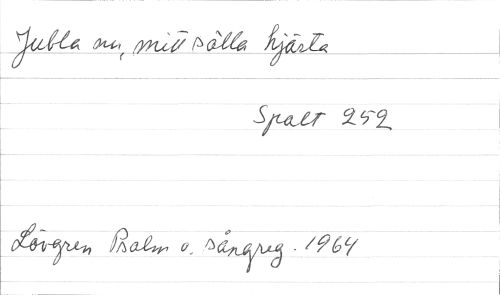 Jubla nu, mitt sälla hjärta
Spalt 252
Lövgren Psalm o. sångreg. 1964